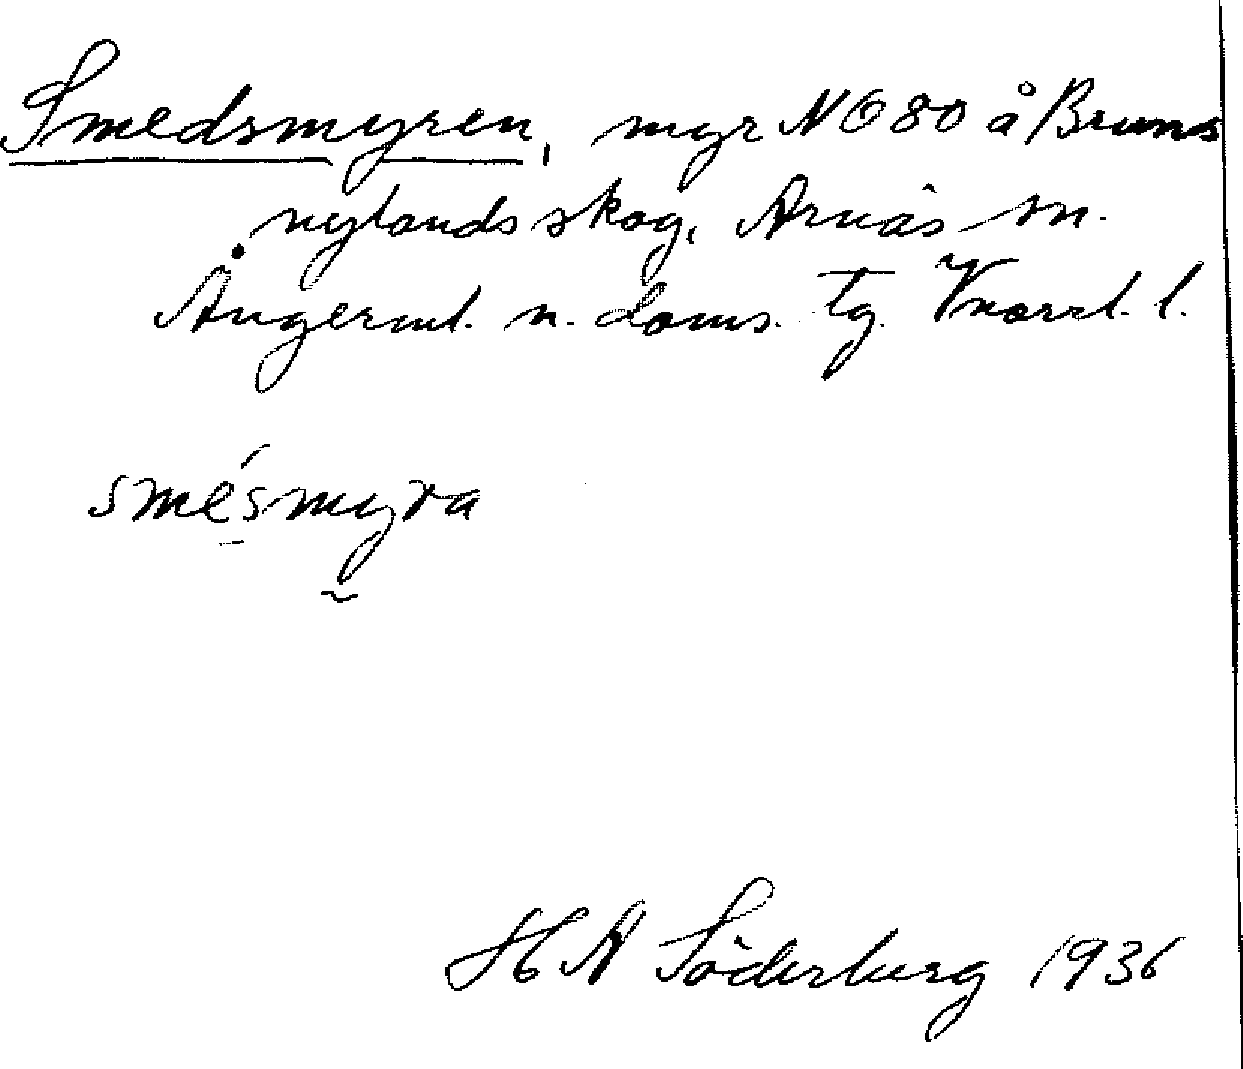 Smedsmyren, myr NO 80 å Bruns
nylands skog, Arnäs sn.
Ångerml. n. doms. tg. Vnorrl. l.
smésmyra
H A Söderberg 1936